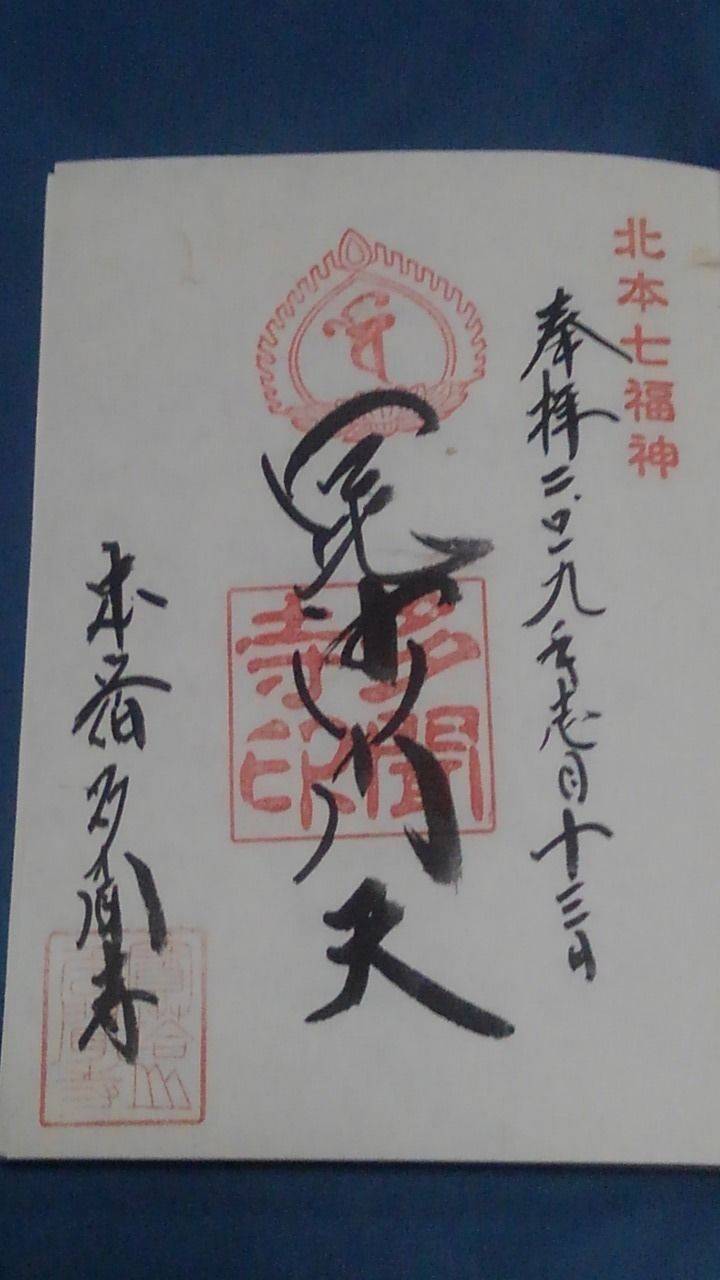 北本七福神
奉拝二〇一九年壱月十三日
毘沙門天
多聞
寺印
本宿多聞寺